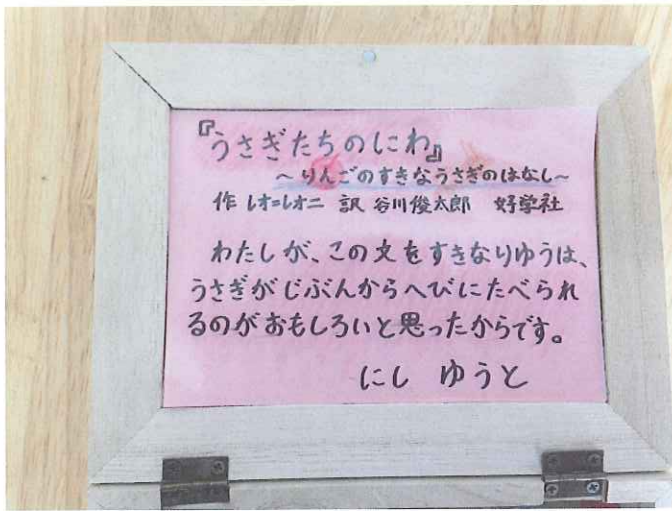 『うさぎたちのにわ』
～りんごのすきなうさぎのはなし～
作 レオ＝レオニ 訳 谷川俊太郎 好学社
わたしが、この文をすきなりゆうは、
うさぎがじぶんからへびにたべられ
るのがおもしろいと思ったからです。
にし ゆうと